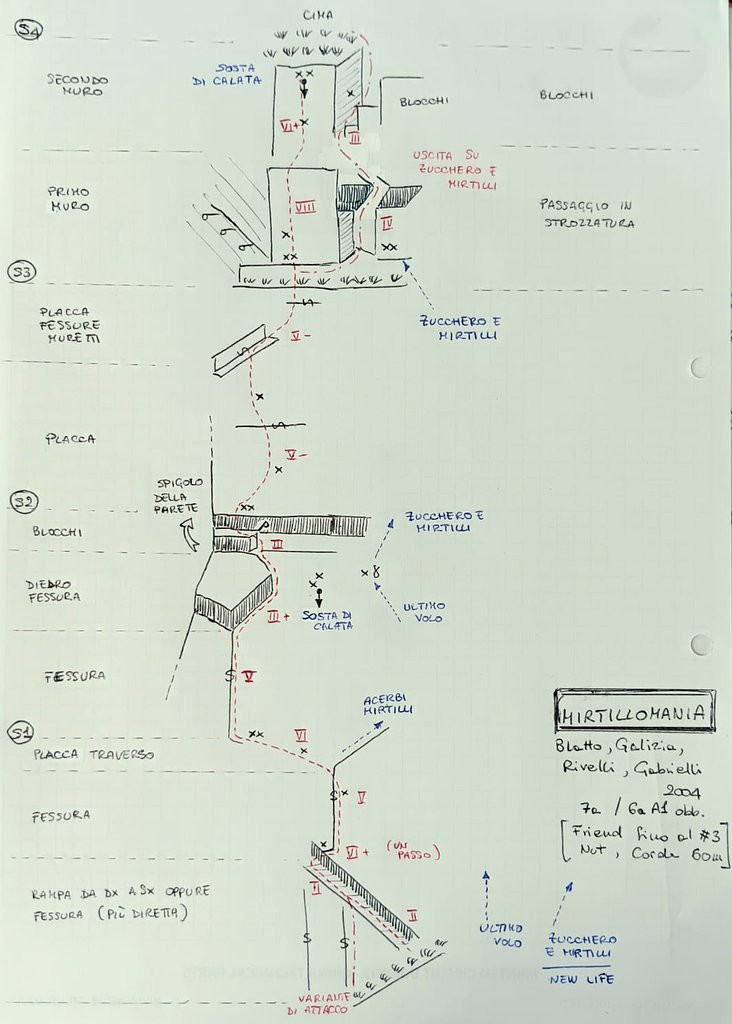 CIMA
S4
SECONDO
MURO
SOSTA
DI CALATA
BLOCCHI
BLOCCHI
VI+
III
USCITA SU
ZUCCHERO E
MIRTILLI
PRIMO
MURO
VIII
IV
PASSAGGIO IN
STROZZATURA
S3
PLACCA
FESSURE
MURETTI
V-
ZUCCHERO E
MIRTILLI
PLACCA
V-
SPIGOLO
DELLA
PARETE
S2
BLOCCHI
III
ZUCCHERO E
MIRTILLI
DIEDRO
FESSURA
III+
SOSTA DI
CALATA
ULTIMO
VOLO
FESSURA
V
ACERBI
MIRTILLI
S1
PLACCA TRAVERSO
VI
MIRTILLOMANIA
Blatto, Galizia,
Rivelli, Gabrielli
2004
7a / 6a A1 obb.
[Friend fino al #3
Nut, Corde 60m]
FESSURA
V
VI+ (UN
PASSO)
RAMPA DA DX A SX OPPURE
FESSURA (PIÙ DIRETTA)
II
ULTIMO
VOLO
ZUCCHERO
E MIRTILLI
NEW LIFE
VARIANTE
DI ATTACCO